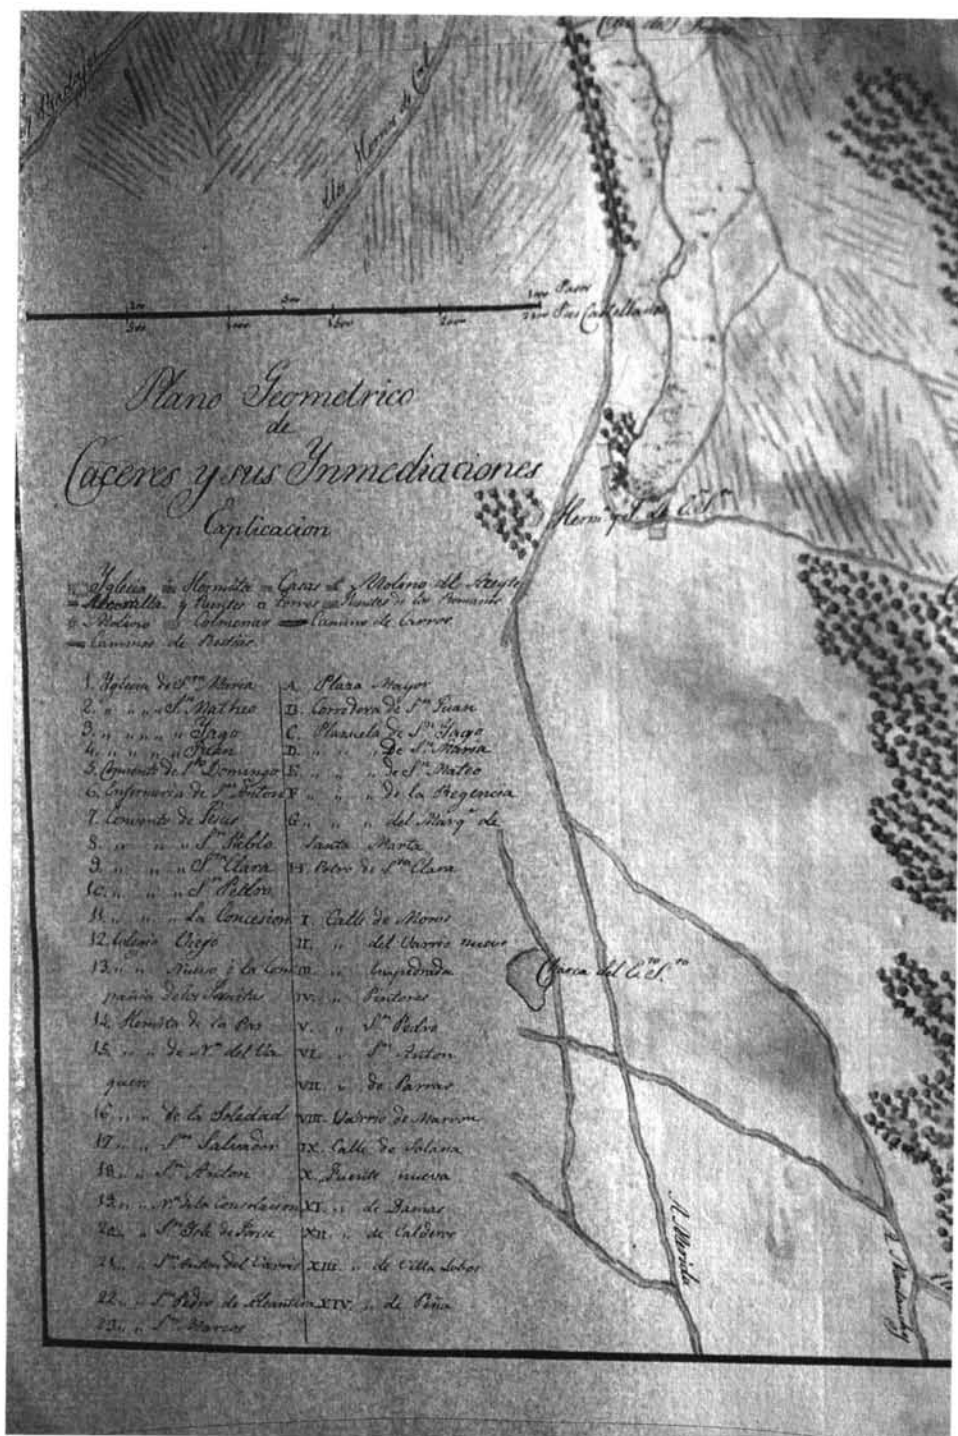 A Badajoz
A los Hornos de Cal
500
1000 Pasos
500 1000 1500 2000 2500 Pies Castellanos
Plano Geometrico
de
Caçeres y sus Ynmediaciones
Explicacion
Yglesia Hermita Casas Molino del Azeyte
Alcantarilla y Puentes o torres Puentes de los Romanos
Molino Colmenas Camino de Carros
Caminos de Bestias
1. Yglesia de Sta. Maria
2. " " " Sn. Matheo
3. " " " " Yago
4. " " " " Juan
5. Convento de Sto. Domingo
6. Enfermeria de Sn. Antonio
7. Convento de Jesus
8. " " " Sn. Pablo
9. " " " Sta. Clara
10. " " " Sn. Pedro
11. " " " La Concesion
12. Colegio Viejo
13. " " Nuevo ò la Com
pañia de los Jesuitas
14. Hermita de la Paz
15. " " de Na. del Va
quero
16. " " de la Soledad
17. " " Sn. Salvador
18. " " Sn. Anton
19. " " Na. de la Consolacion
20. " " Sn.
21. " " Sn. Anton del Varrio
22. " " Sn. Pedro de Alcantara
23. " " Sn. Marcos
A. Plaza Mayor
B. Corredera de Sn. Juan
C. Plazuela de Sn. Yago
D. " " de Sta. Maria
E. " " de Sn. Mateo
F. " " de la Regencia
G. " " del Marqs. de
Santa Marta
H. Potro de Sta. Clara
I. Calle de Moros
II. " del Varrio nuevo
III. " Empedrada
IV. " Pintores
V. " Sn. Pedro
VI. " Sn. Anton
VII. " de Parras
VIII. Varrio de Marron
IX. Calle de Solana
X. Fuente nueva
XI. " de Damas
XII. " de Calderos
XIII. " de Villa Lobos
XIV. " de Peña
Hermta.
Charca del
A Merida
A Montanchz